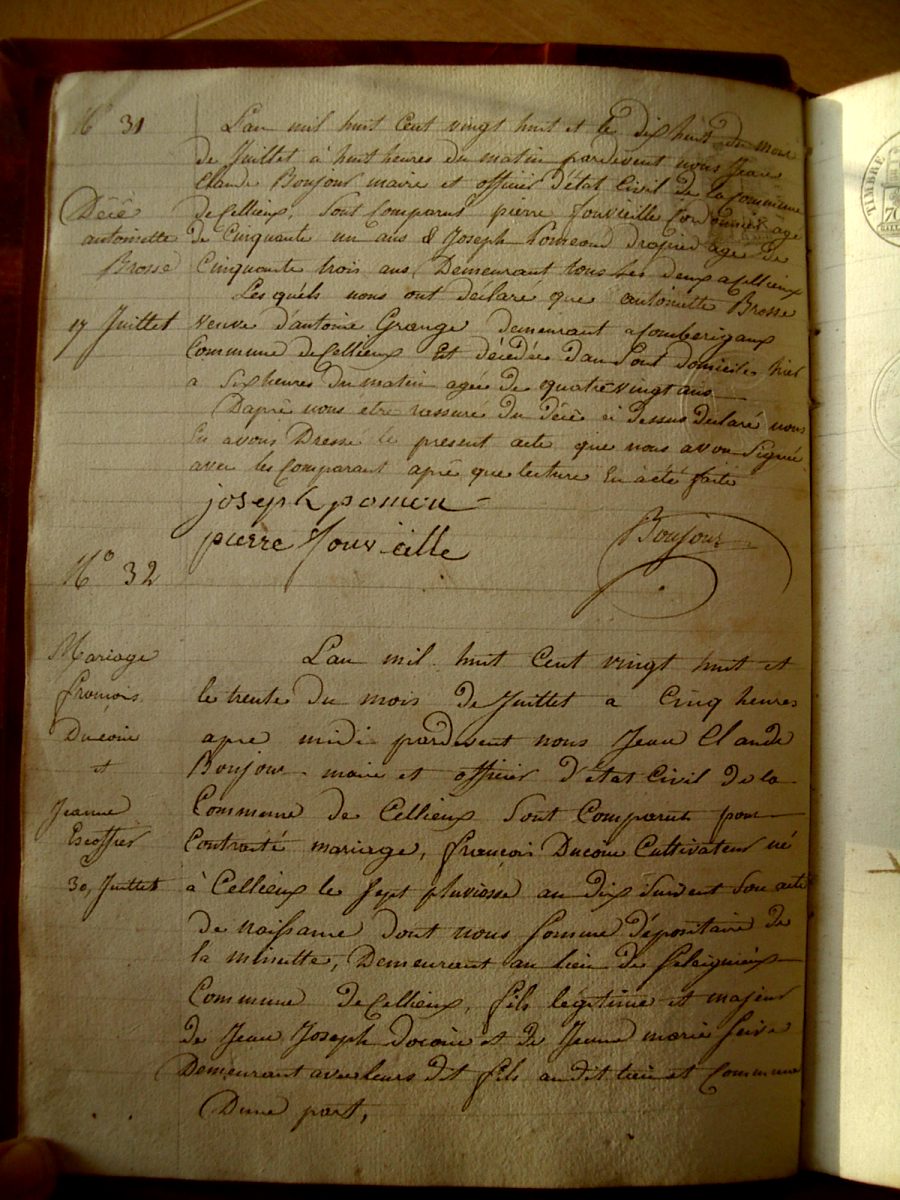 N° 31
Décé
antoinette
Brosse
17 Juillet
L'an mil huit Cent vingt huit et le dix huit du mois
de Juillet à huit heures du matin pardevent nous Jean
Claude Boujour maire et officier d'état Civil de la Commune
de Cellieux, sont Comparus pierre fouvieille Cordonnier agé
de Cinquante un ans & Joseph agé de
Cinquante trois ans Demeurant tous les deux a Cellieux
Les quels nous ont déclaré que antoinette Brosse
veuve d'antoine Grange demeurant
Commune de Cellieux Est décédée dan Sont domicile hier
a Six heures du matin agée de quatrevingt ans
Daprè nous être rassuré du décè ci dessus declaré nous
En avons Dressé le present acte que nous avon Signé
avec les Comparant aprè que lecture En à été faite
joseph pomeu
pierre fouvieille
Boujour
N° 32
Mariage
françois
Ducoin
et
Jeanne
Escoffier
30, Juillet
L'an mil huit Cent vingt huit et
le trente du mois de Juillet a Cinq heures
apre midi pardevent nous Jean Claude
Boujour maire et officier d'état Civil de la
Commune de Cellieux Sont Comparut pour
Contracté mariage, francois Ducoin Cultivateur né
à Cellieux le Sept pluviosse an dix Suivent Son acte
de naissance dont nous Somme dépositaire de
la minutte, Demeurant au lieu de
Commune de Cellieux, fils légitime et majeur
de Jean Joseph docoin et de Jeanne marie
Demeurant avec leurs dit fils audit lieu et Commune
Dune part,
TIMBRE